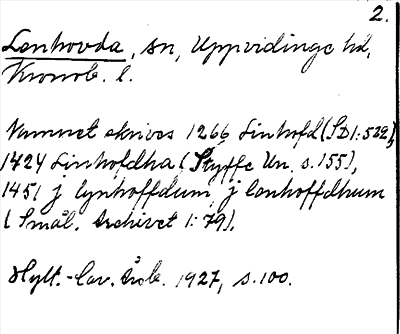 2.
Lenhovda, sn, Uppvidinge hd,
Kronob. l.
Namnet skrives 1266 Linhofd (SD 1:522),
1424 Linhofdha (Styffe Un. s.155),
1451 j lynhoffdum, j lenhoffdhum
(Smål. Archivet 1:79).
Hylt.-Cav. Årsb. 1927, s.100.